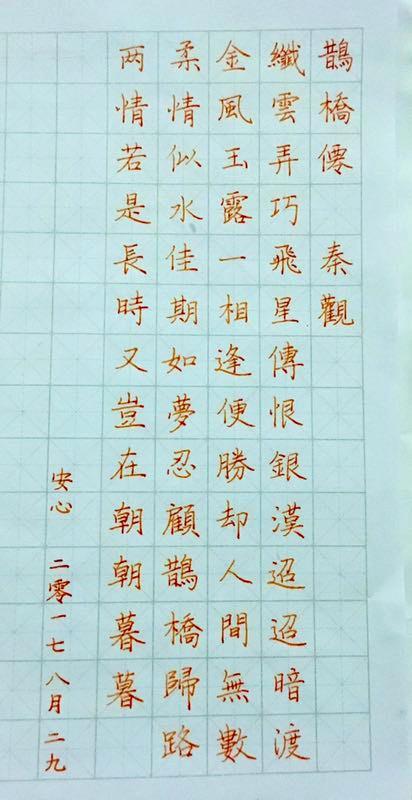 鵲橋僊 秦觀
纖雲弄巧飛星傳恨銀漢迢迢暗渡
金風玉露一相逢便勝却人間無數
柔情似水佳期如夢忍顧鵲橋歸路
两情若是長時又豈在朝朝暮暮
安心 二零一七 八月 二九